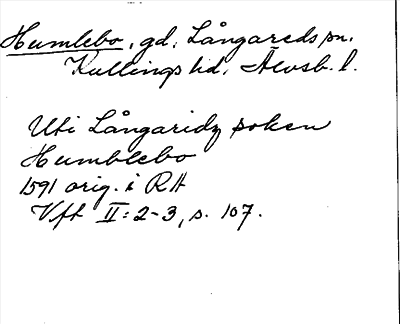 Humlebo, gd, Långareds sn.
Kullings hd, Älvsb. l.
Uti Långaridz soken
Humblebo
1591 orig. i RA
Vft II:2-3, s. 107.